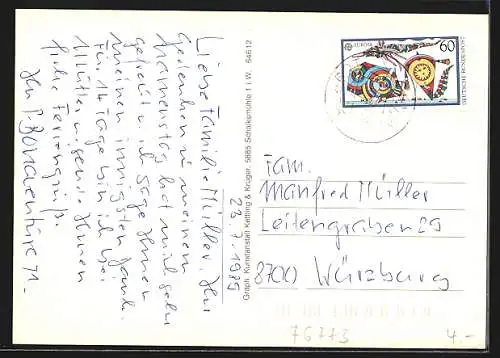 Liebe Familie Müller. Ihr
Gedenken zu meinem
Namenstag hat mich sehr
gefreut u. ich sage Ihnen
meinen innigsten Dank.
Für 14 Tage bin ich bei
Mutter u. sende Ihnen
frohe Feriengrüße.
Ihr P. Bonaventura M.
23.7.1989
Graph. Kunstanstalt Kettling & Krüger, 5885 Schalksmühle 1 i.W. 64612
EUROPA
60
DEUTSCHE BUNDESPOST
Fam.
Manfred Müller
Leitengraben 29
8700 Würzburg
76773
4.-